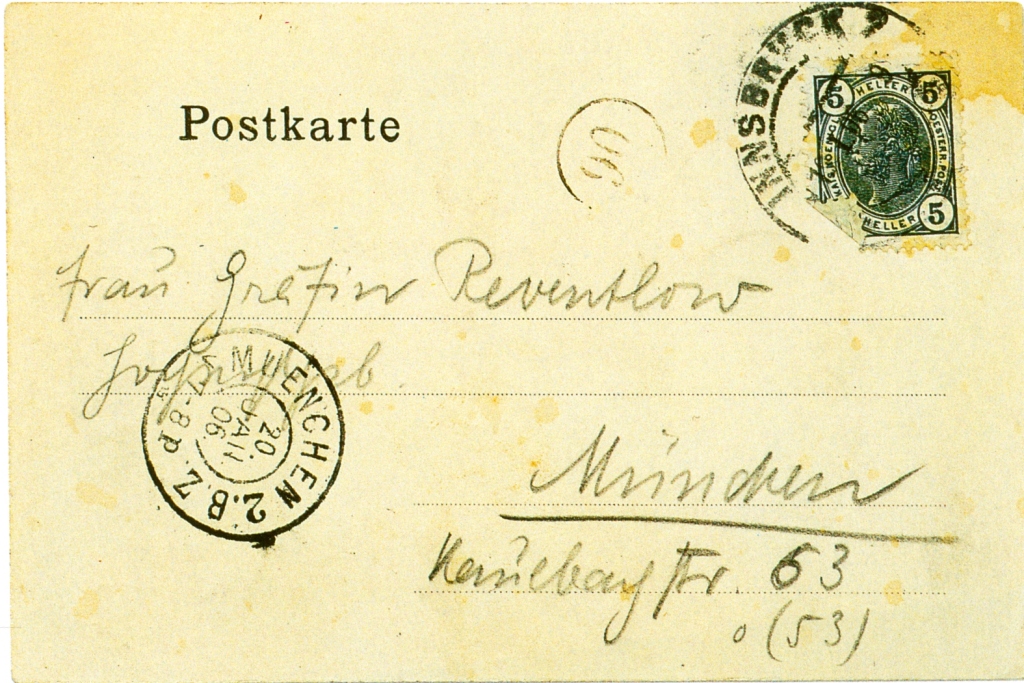 Postkarte
06
INNSBRUCK 2
5 HELLER 5
KAIS. KOENIGL. OESTERR. POST
HELLER 5
Frau Gräfin Reventlow
MUENCHEN 2.B.Z.
7-8 P
20
JAN
06
München
Kaulbachstr. 63
o (53)